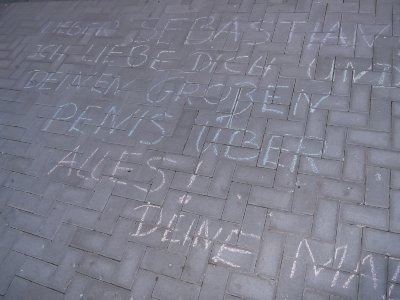 LIEBER SEBASTIAN
ICH LIEBE DICH UND
DEINEN GROßEN
PENIS ÜBER
ALLES!
DEINE
MA